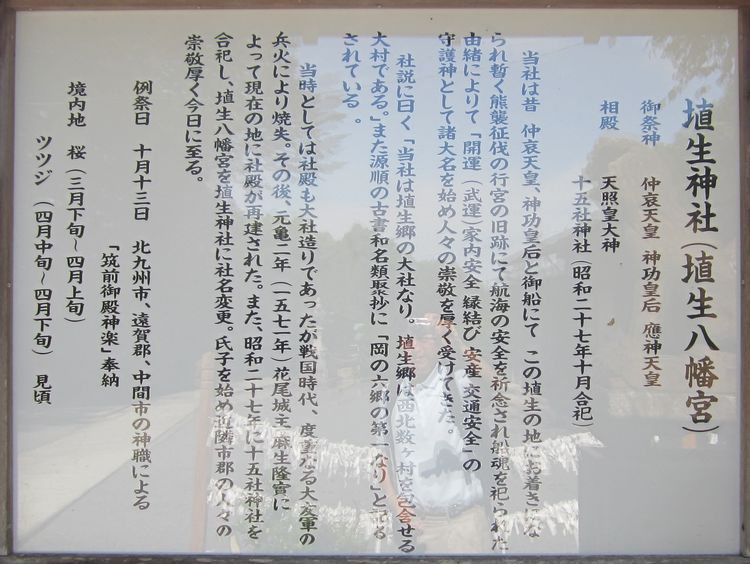 埴生神社(埴生八幡宮)
御祭神 仲哀天皇 神功皇后 應神天皇
相殿 天照皇大神
十五社神社(昭和二十七年十月合祀)
当社は昔 仲哀天皇、神功皇后と御船にて この埴生の地にお着きにな
られ暫く熊襲征伐の行宮の旧跡にて航海の安全を祈念され船魂を祀られた
由緒によりて「開運(武運)家内安全 縁結び 安産 交通安全」の
守護神として諸大名を始め人々の崇敬を厚く受けてきた。
社説に曰く「当社は埴生郷の大社なり。埴生郷は西北数ヶ村を包含せる
大村である。」また源順の古書和名類聚抄に「岡の六郷の第一なり」と記る
されている。
当時としては社殿も大社造りであったが戦国時代、度重なる大友軍の
兵火により焼失。その後、元亀二年(一五七一年)花尾城主 麻生隆實に
よって現在の地に社殿が再建された。また、昭和二十七年に十五社神社を
合祀し、埴生八幡宮を埴生神社に社名変更。氏子を始め近隣市郡の人々の
崇敬厚く今日に至る。
例祭日 十月十三日 北九州市、遠賀郡、中間市の神職による
「筑前御殿神楽」奉納
境内地 桜(三月下旬~四月上旬)
ツツジ (四月中旬~四月下旬) 見頃